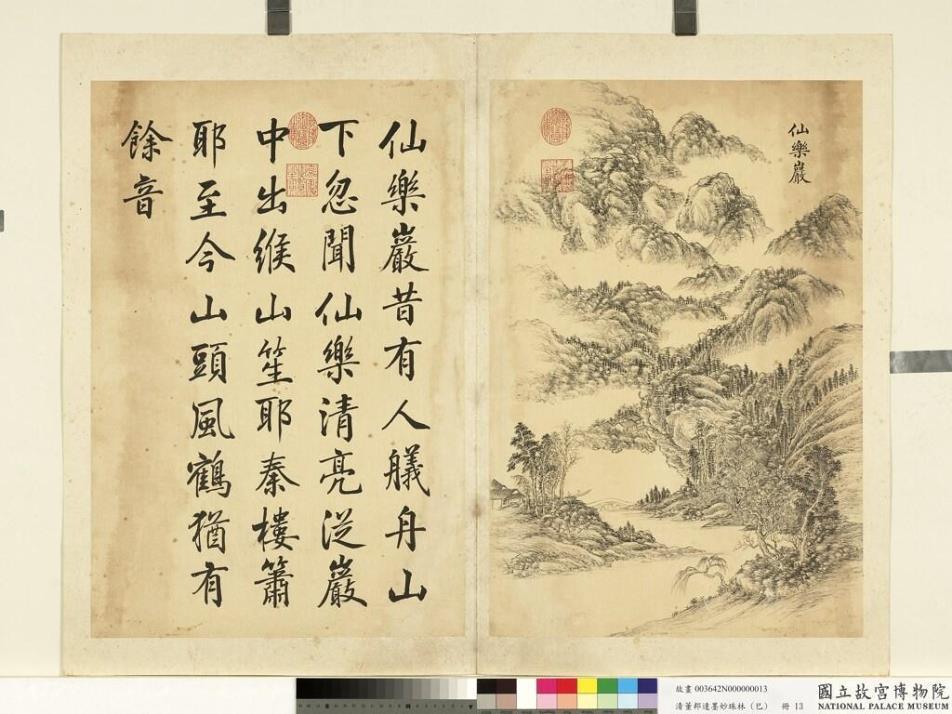 仙樂巖
仙樂巖昔有人艤舟山
下忽聞仙樂清亮從巖
中出緱山笙耶秦樓簫
耶至今山頭風鶴猶有
餘音
故畫 003642N000000013
清董邦達墨妙珠林(巳) 冊 13
國立故宮博物院
NATIONAL PALACE MUSEUM